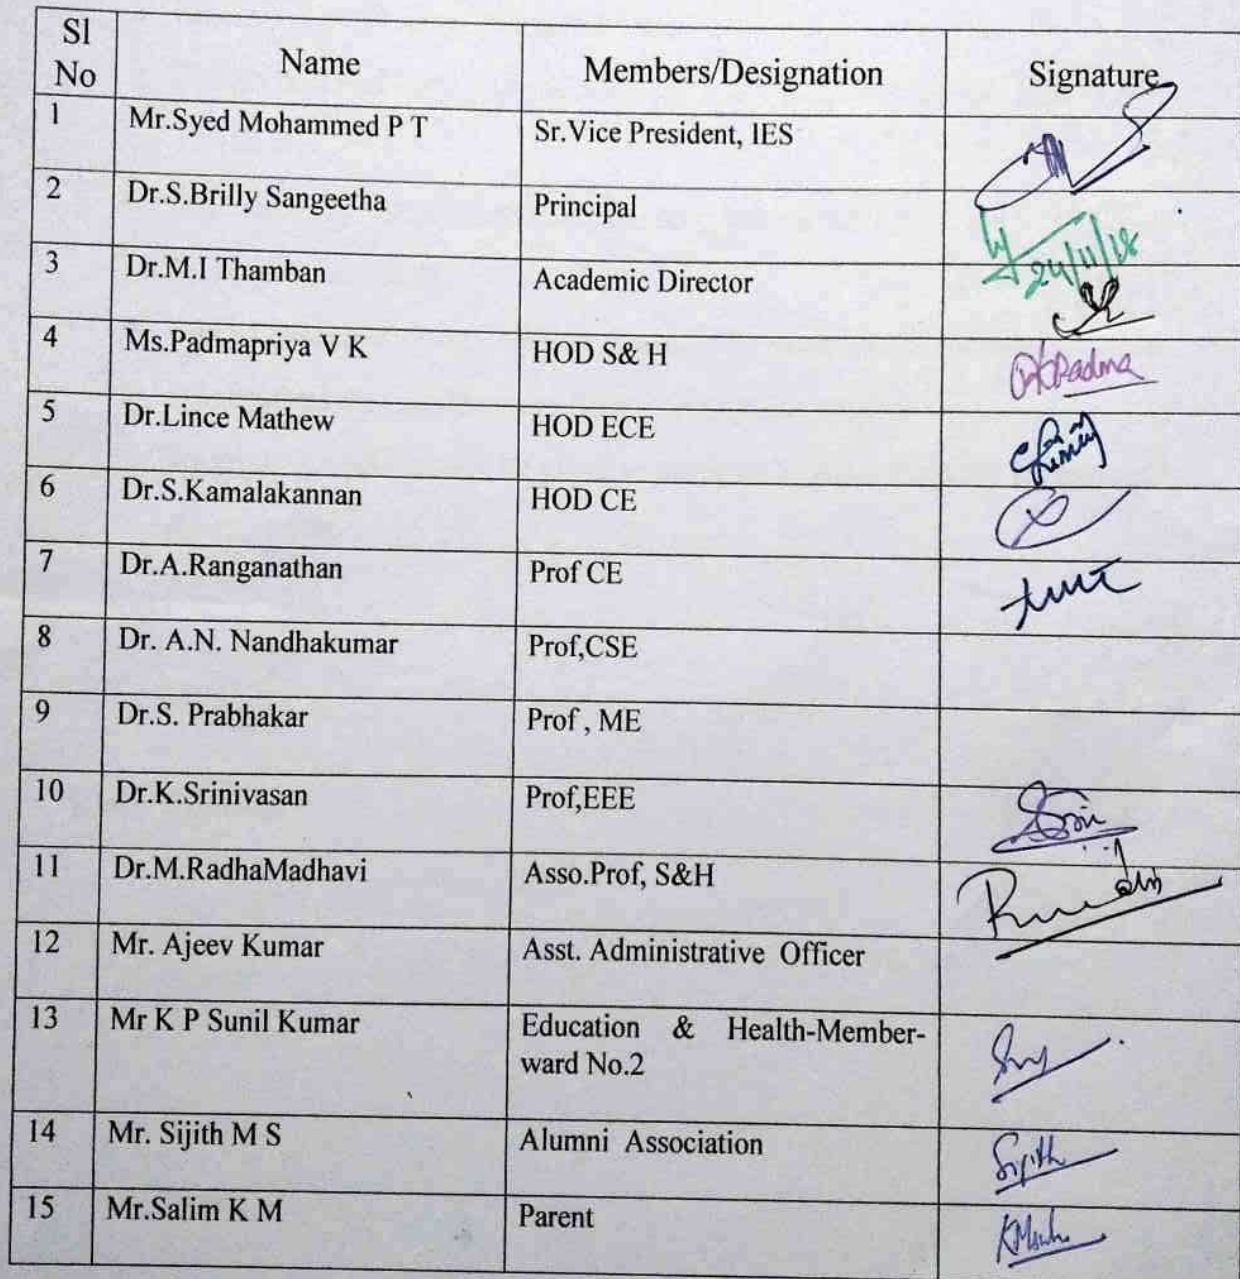 Sl No Name Members/Designation Signature
1 Mr.Syed Mohammed P T Sr.Vice President, IES
2 Dr.S.Brilly Sangeetha Principal 24/11/18
3 Dr.M.I Thamban Academic Director
4 Ms.Padmapriya V K HOD S& H
5 Dr.Lince Mathew HOD ECE
6 Dr.S.Kamalakannan HOD CE
7 Dr.A.Ranganathan Prof CE
8 Dr. A.N. Nandhakumar Prof,CSE
9 Dr.S. Prabhakar Prof , ME
10 Dr.K.Srinivasan Prof,EEE
11 Dr.M.RadhaMadhavi Asso.Prof, S&H
12 Mr. Ajeev Kumar Asst. Administrative Officer
13 Mr K P Sunil Kumar Education & Health-Member-
ward No.2
14 Mr. Sijith M S Alumni Association Sijith
15 Mr.Salim K M Parent